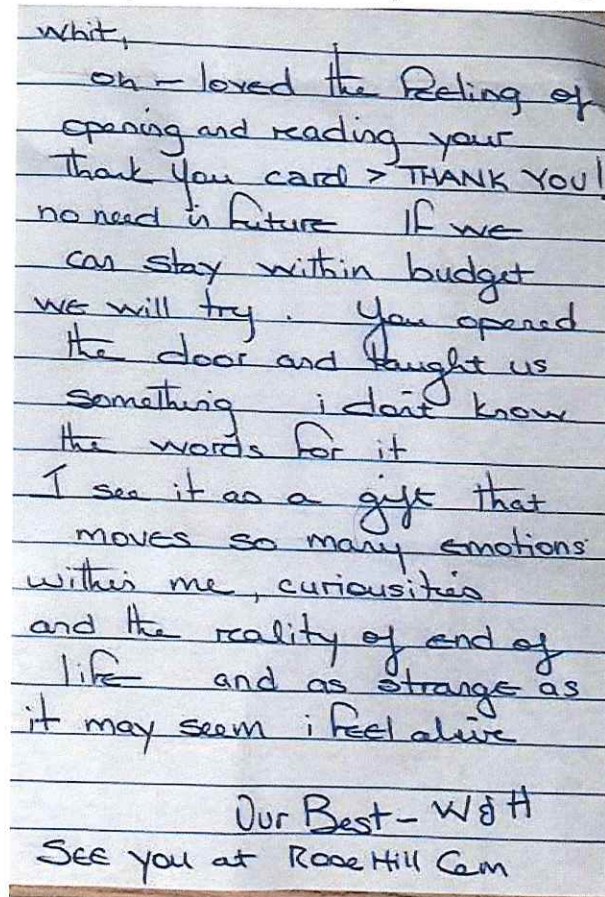 Whit,
oh - loved the feeling of
opening and reading your
Thank You card > THANK YOU!
no need in future If we
can stay within budget
we will try. You opened
the door and taught us
something i don't know
the words for it
I see it as a gift that
moves so many emotions
within me, curiousities
and the reality of end of
life and as strange as
it may seem i feel alive
Our Best - W & H
See you at Rose Hill Cem